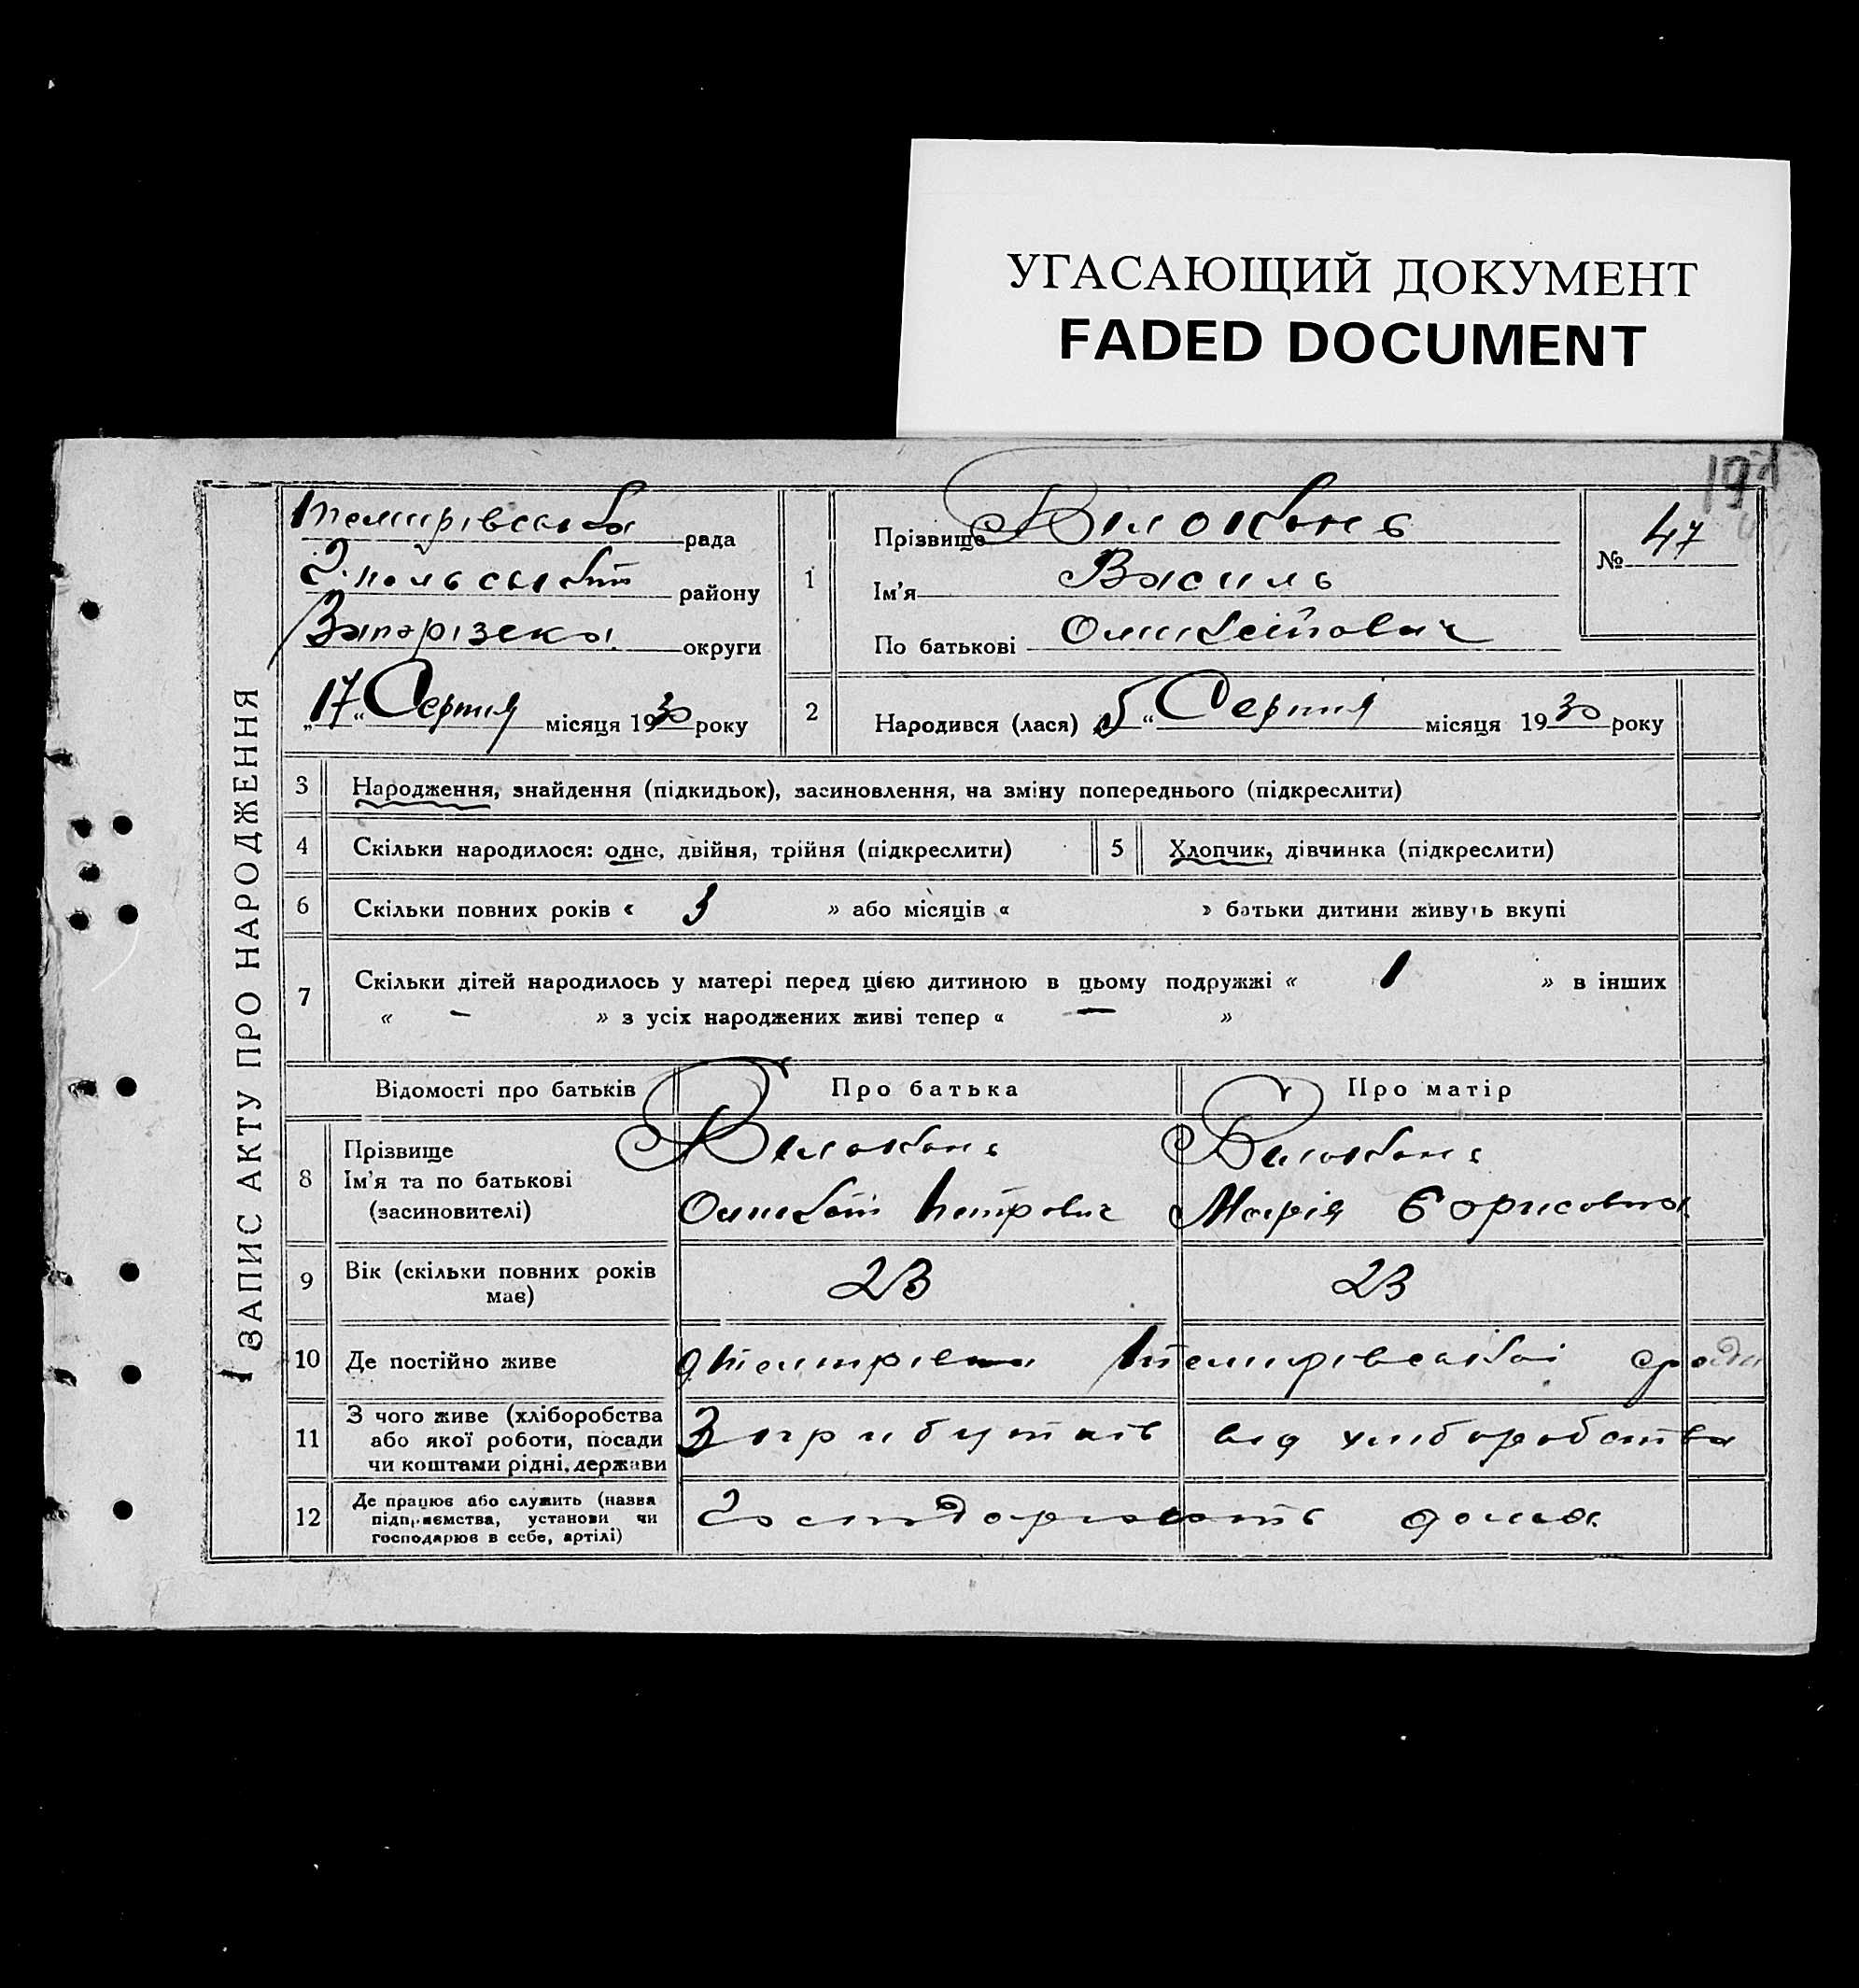 УГАСАЮЩИЙ ДОКУМЕНТ
FADED DOCUMENT
ЗАПИС АКТУ ПРО НАРОДЖЕННЯ
Темирівська рада
району
округи
„17“ Серпня місяця 1930 року
1
Прізвище Білоконь
Ім'я Василь
По батькові
№ 47
2
Народився (лася) 5“ Серпня місяця 1930 року
3 Народження, знайдення (підкидьок), засиновлення, на зміну попереднього (підкреслити)
4 Скільки народилося: одно, двійня, трійня (підкреслити)
5 Хлопчик, дівчинка (підкреслити)
6 Скільки повних років « 3 » або місяців « » батьки дитини живуть вкупі
7 Скільки дітей народилось у матері перед цією дитиною в цьому подружжі « 1 » в інших
« – » з усіх народжених живі тепер « — »
Відомості про батьків Про батька Про матір
8 Прізвище
Ім'я та по батькові
(засиновителі)
Білоконь
Петрович
Білоконь
Марія Борисовна
9 Вік (скільки повних років
має)
23
23
10 Де постійно живе
Темирівської
11 З чого живе (хліборобства
або якої роботи, посади
чи коштами рідні, держави
З прибутків від хліборобства
12 Де працює або служить (назва
підприємства, установи чи
господарює в себе, артілі)
дома